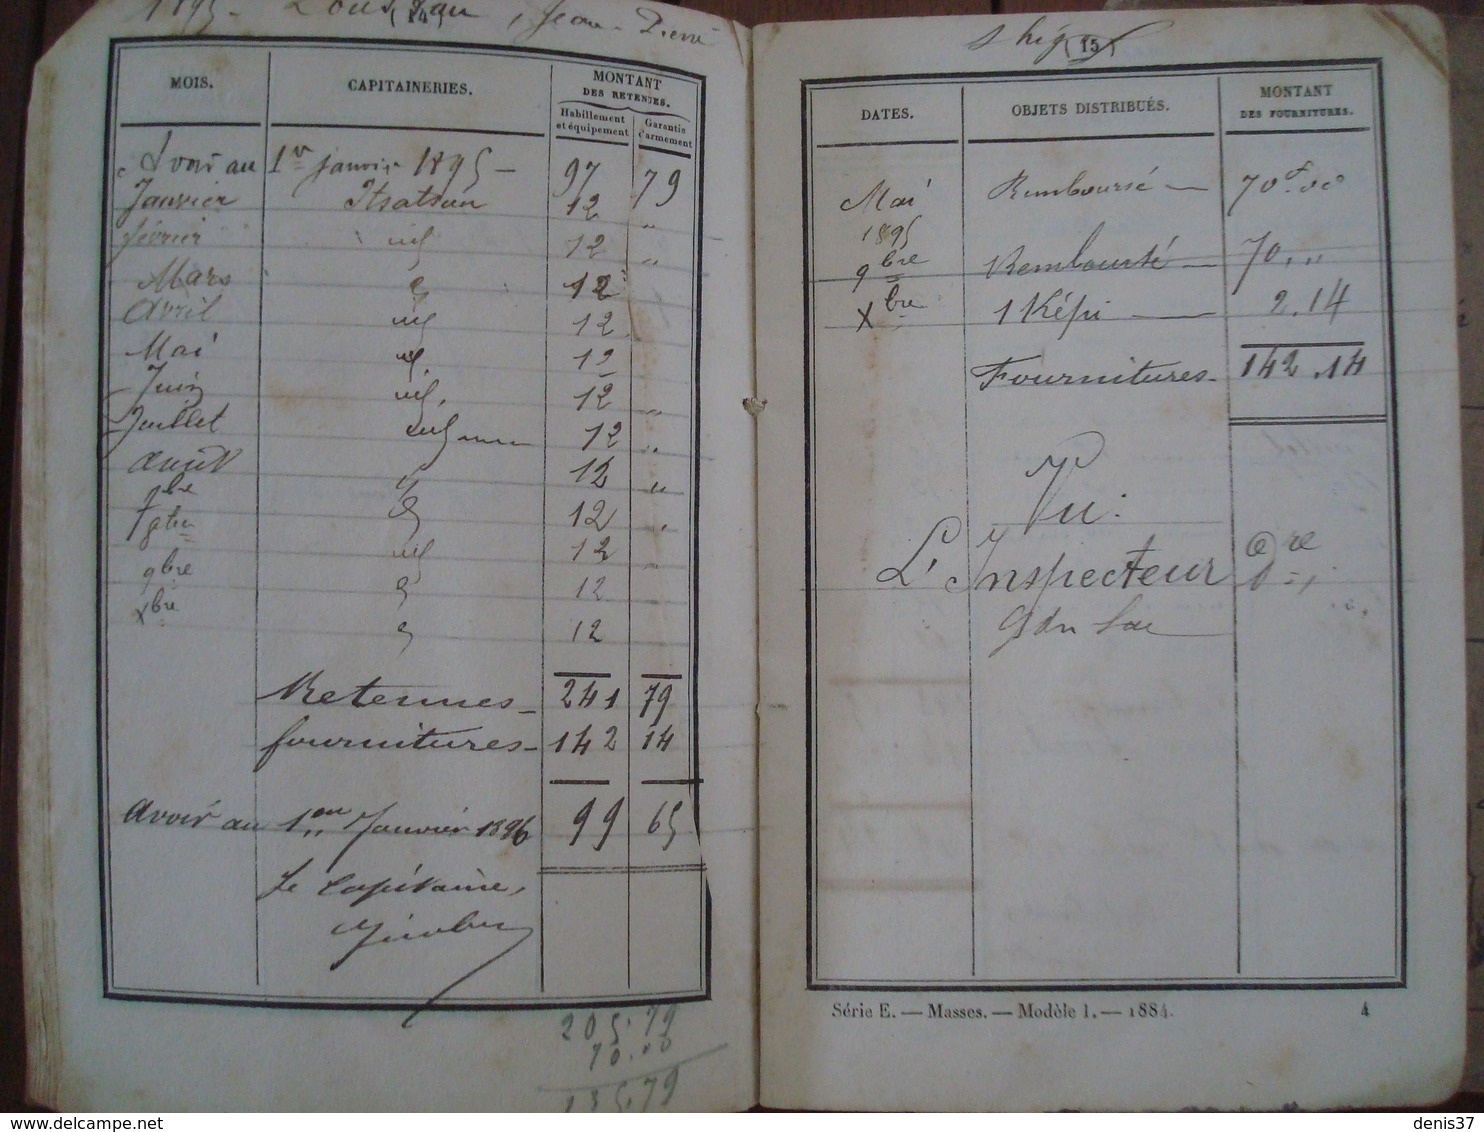 1895
(14)
Jean-Pierre
MOIS.
CAPITAINERIES.
MONTANT
DES RETENUES.
Habillement
et équipement
Garantie
d'armement
Avoir au 1er janvier 1895 — 97 79
Janvier 12 "
février 12 "
Mars 12
Avril 12
Mai 12
Juin 12 "
Juillet 12 "
Août 12 "
7bre 12 "
12
9bre 12
Xbre 12
Retenues — 241 79
fournitures — 142 14
Avoir au 1er Janvier 1896 99 65
Le Capitaine,
205.79
70.00
135.79
(15)
DATES.
OBJETS DISTRIBUÉS.
MONTANT
DES FOURNITURES.
Mai Remboursé — 70f.00
1895
9bre Remboursé — 70,"
Xbre 1 Képi — 2.14
Fournitures — 142.14
Vu:
L'Inspecteur
Série E. — Masses. — Modèle 1. — 1884.
4
www.delcampe.net
denis37